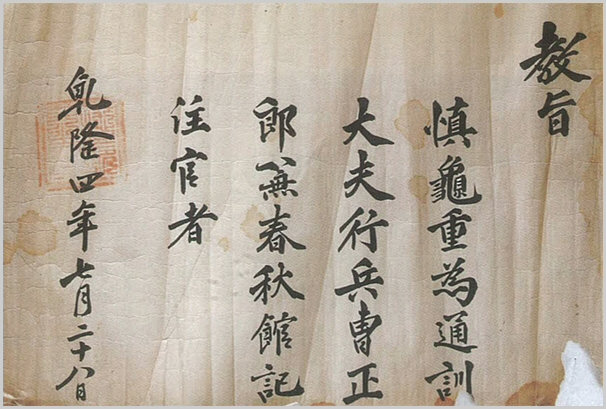 教旨
慎龜重為通訓
大夫行兵曹正
郎兼春秋館記
注官者
乾隆四年七月二十八日